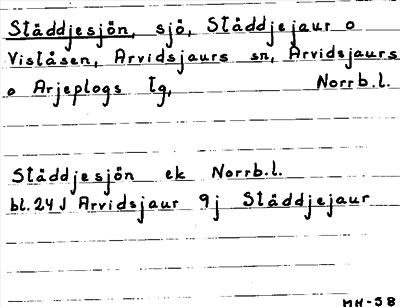 Ståddjesjön, sjö, Ståddjejaur o
Viståsen, Arvidsjaurs sn, Arvidsjaurs
o Arjeplogs tg, Norrb.l.
Ståddjesjön ek Norrb.l.
bl. 24J Arvidsjaur 9j Ståddjejaur
MH-58